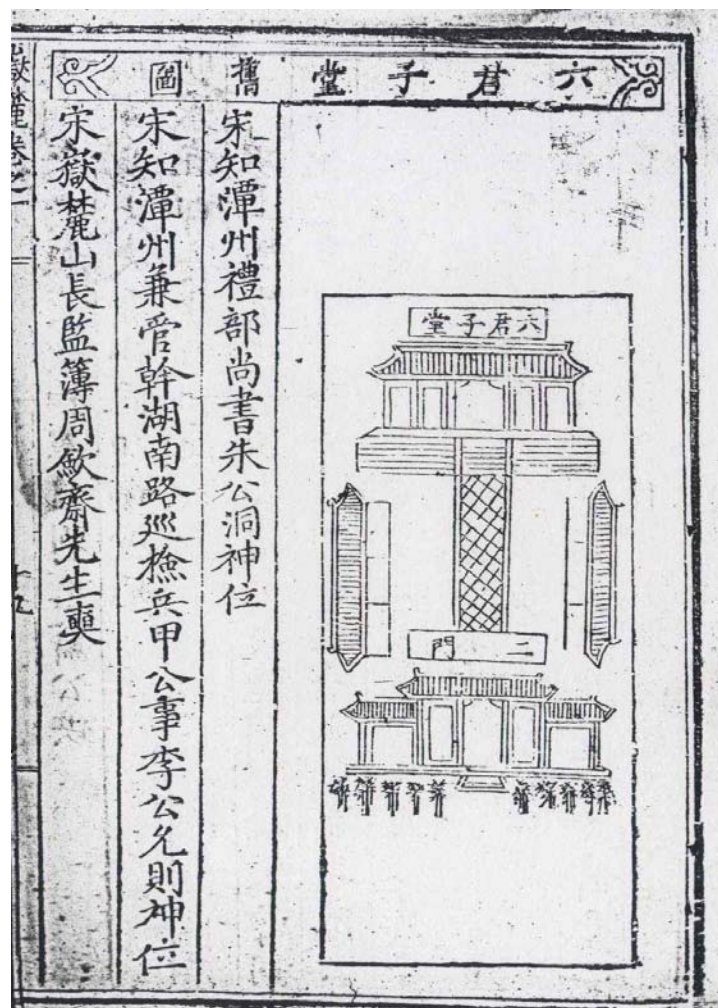 六君子堂舊圖
六君子堂
二門
宋知潭州禮部尚書朱公洞神位
宋知潭州兼管幹湖南路巡檢兵甲公事李公允則神位
宋嶽麓山長監簿周歛齋先生奭
嶽麓卷之一